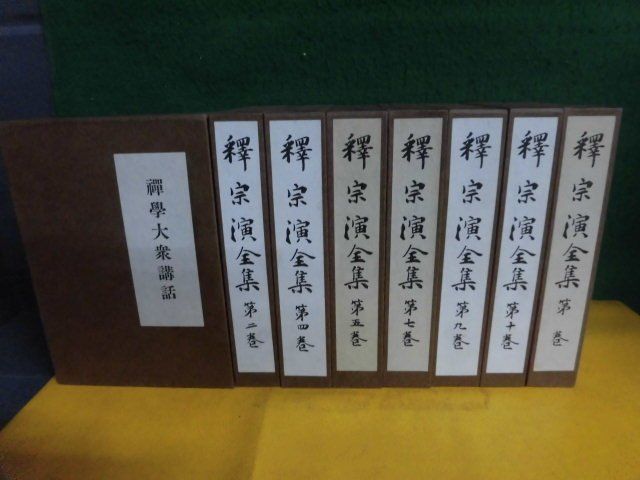 禪學大衆講話
釋宗演全集 第二巻
釋宗演全集 第四巻
釋宗演全集 第五巻
釋宗演全集 第七巻
釋宗演全集 第九巻
釋宗演全集 第十巻
釋宗演全集 第 巻